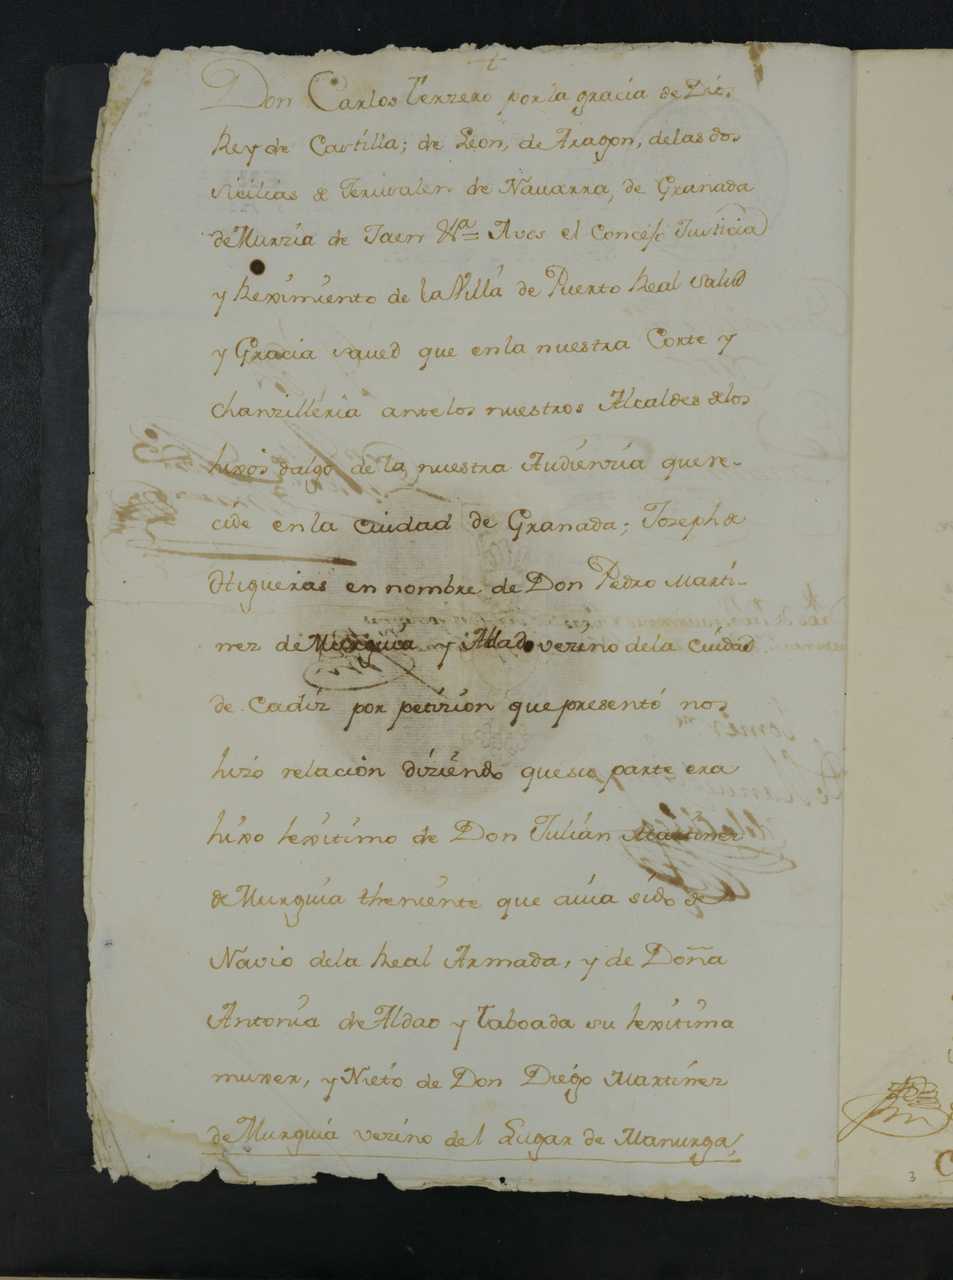 +
Don Carlos Terzero por la gracia de Dios
Rey de Castilla; de Leon, de Aragon, delas dos
sicilias de Jerusalen de Navarra, de Granada
de Murzia de Jaen &ª= Avos el Concejo Justicia
y Reximiento de la Villa de Puerto Real salud
y Gracia saued que enla nuestra Corte y
chanzilleria ante los nuestros Alcaldes delos
hixos dalgo de la nuestra Audienzia que re-
cide en la Ciudad de Granada; Joseph de
Higueras en nombre de Don Pedro Marti-
nez de Murguia y Aldao vezino dela Ciudad
de Cadiz por petizion que presentó nos
hizo relacion diziendo quesu parte era
hixo lexitimo de Don Julian Martinez
de Murguia theniente que auia sido de
Navio dela Real Armada, y de Doña
Antonia de Aldao y Taboada su lexitima
muxer, y Nieto de Don Diego Martinez
de Murguia vezino del Lugar de Manurga,
3